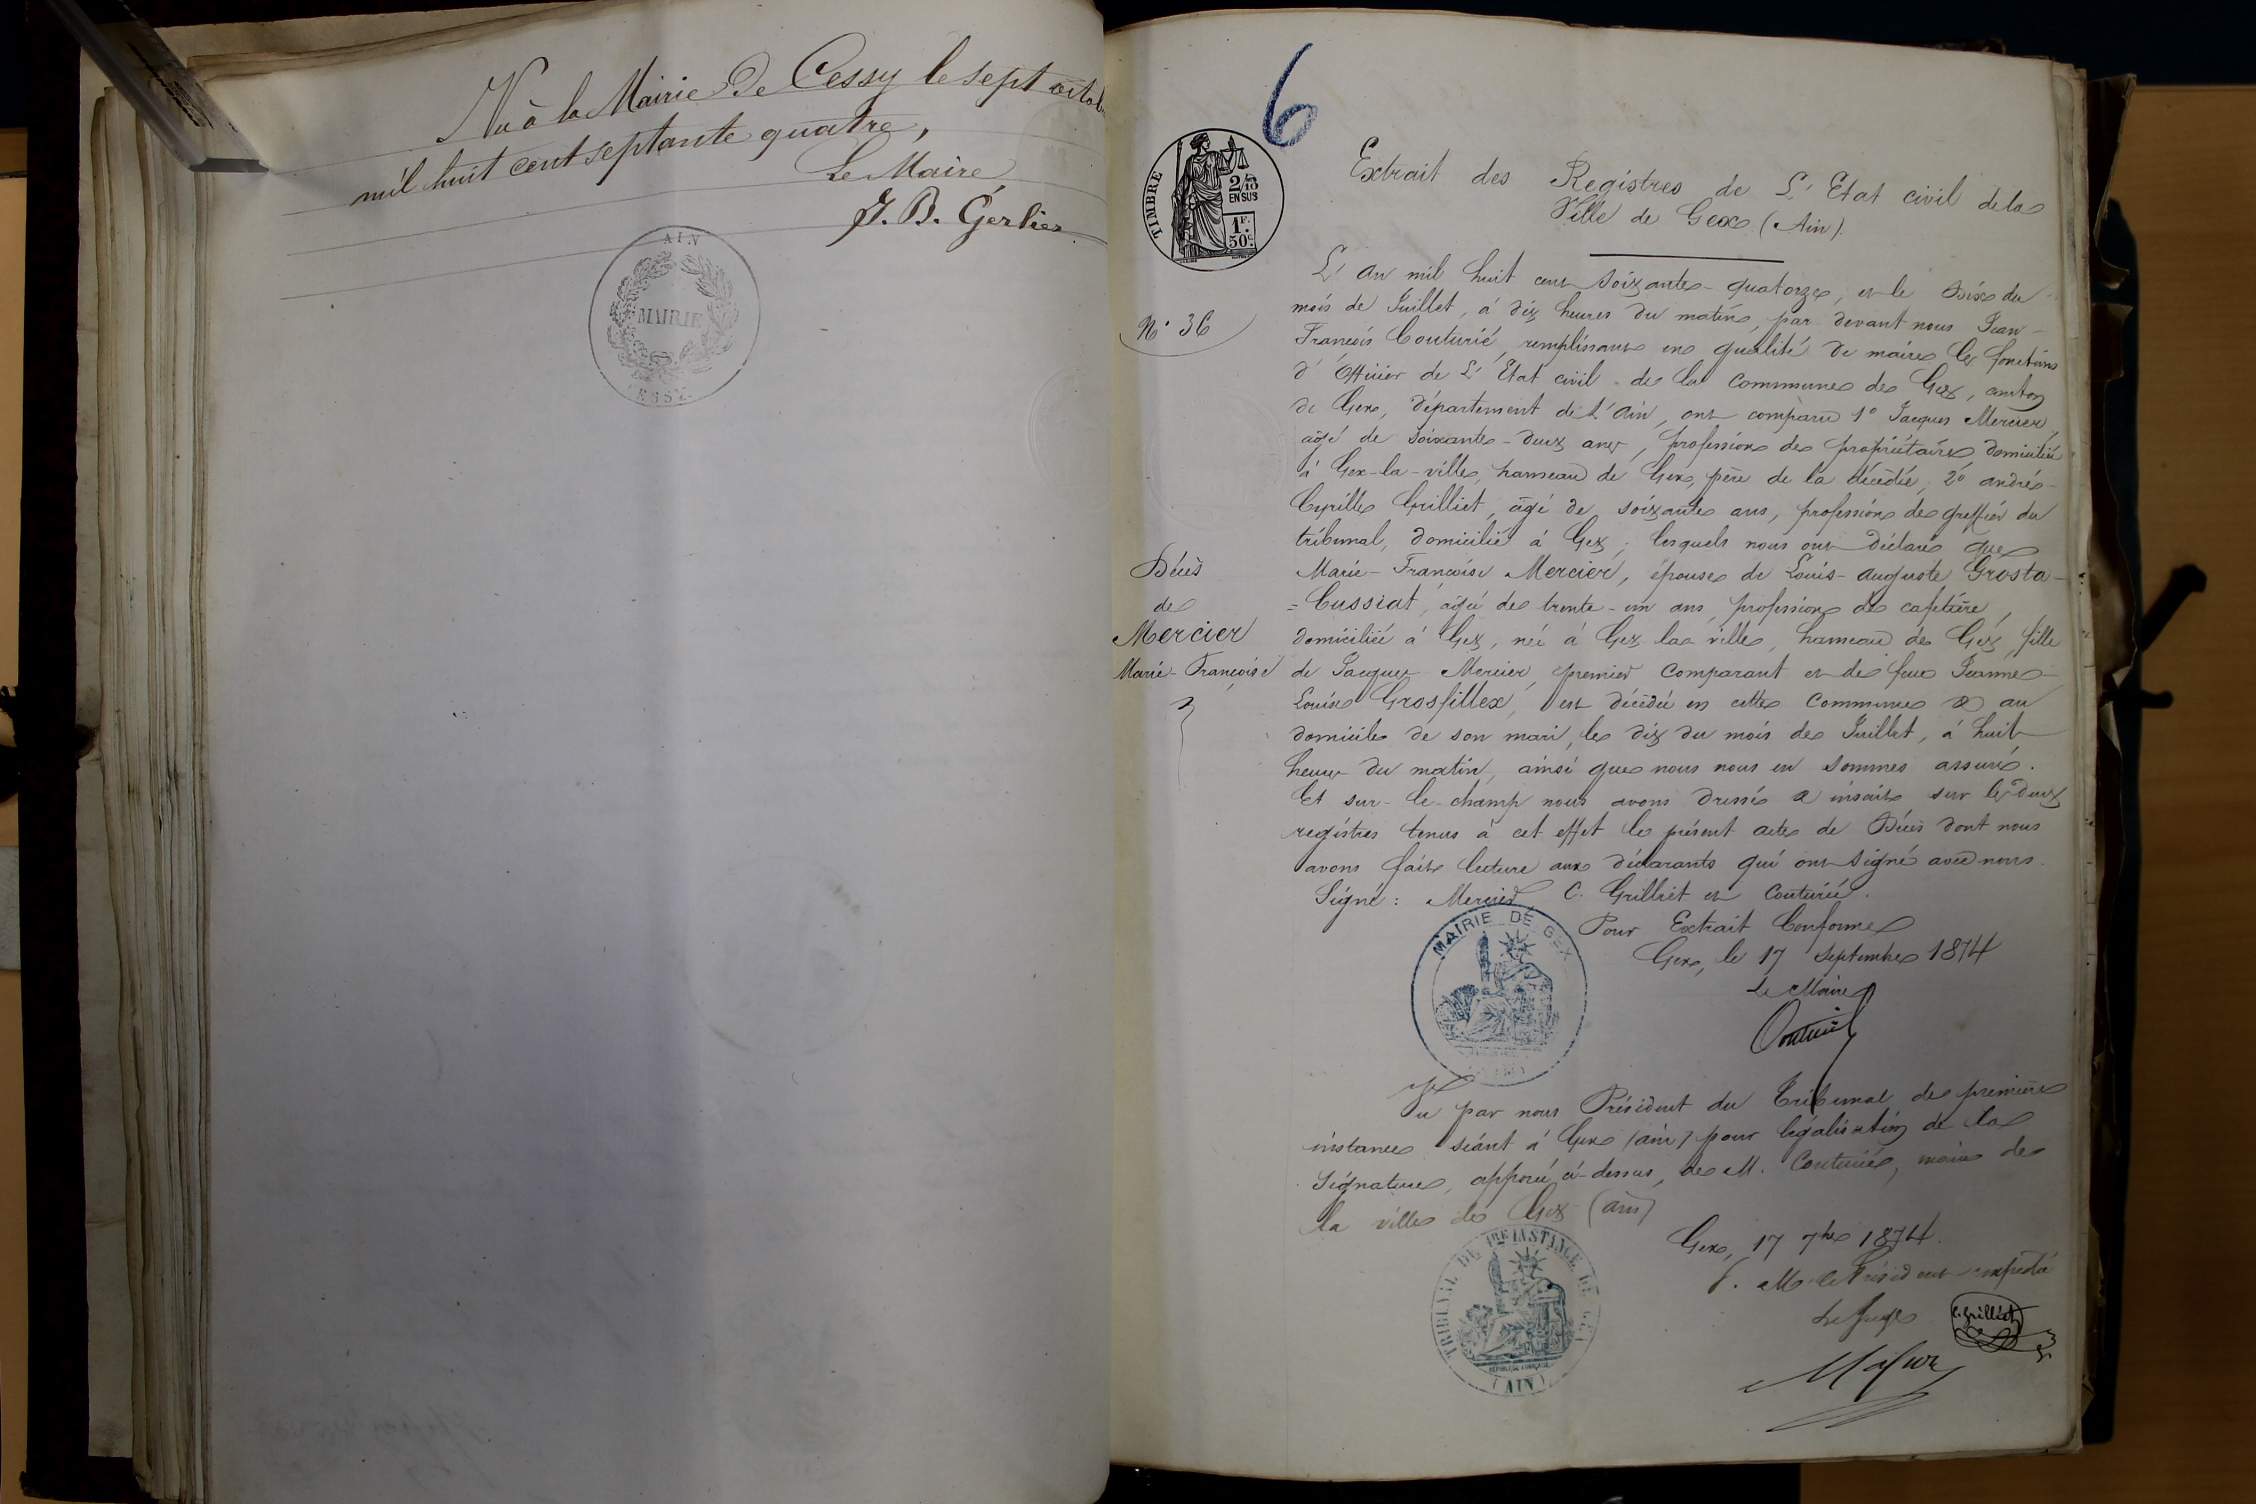 Vu à la Mairie de Cessy le sept octob
mil huit cent septante quatre,
Le Maire
J. B. Gerlier
AIN
MAIRIE
CESSY
6
TIMBRE
2/10
EN SUS
1F.
50c.
Extrait des Registres de L'Etat civil de la
Ville de Gex (Ain).
L'an mil huit cent soixante-quatorze, et le dix du
mois de Juillet, à dix heures du matin, par devant nous Jean-
N° 36
François Couturié, remplissant en qualité de maire les fonctions
d'Officier de L'Etat civil de la commune de Gex, canton
de Gex, département de L'Ain, ont comparu 1° Jacques Mercier,
âgé de soixante-deux ans, profession de propriétaire domicilié
à Gex-la-ville, hameau de Gex, père de la décédée, 2° andré-
Cyrille Grilliet, âgé de soixante ans, profession de greffier du
tribunal, domicilié à Gex; lesquels nous ont déclaré que
Décès
de
Mercier
Marie-Françoise
Marie-Françoise Mercier, épouse de Louis-auguste Grosta-
=Cussiat, âgée de trente-un ans, profession de cafetière,
domiciliée à Gex, née à Gex la ville, hameau de Gex, fille
de Jacques Mercier, premier comparant et de feue Jeanne
Louise Grosfillex, est décédée en cette commune & au
domicile de son mari, le dix du mois de Juillet, à huit
heures du matin, ainsi que nous nous en sommes assuré.
Et sur-le-champ nous avons dressé & inscrit sur les deux
registres tenus à cet effet le présent acte de Décès dont nous
avons fait lecture aux déclarants qui ont signé avec nous.
Signé: Mercier C. Grilliet et Couturié.
MAIRIE DE GEX
Pour Extrait Conforme
Gex, le 17 Septembre 1874
Le Maire
Couturié
Vu par nous Président du Tribunal de première
instance séant à Gex (ain) pour légalisation de la
Signature, apposée ci-dessus, de M. Couturié, maire de
la ville de Gex (ain)
TRIBUNAL DE 1RE INSTANCE DE GEX
(AIN)
Gex, 17 7bre 1874.
P. M. le Président empêché
Le Juge
C. Grilliet